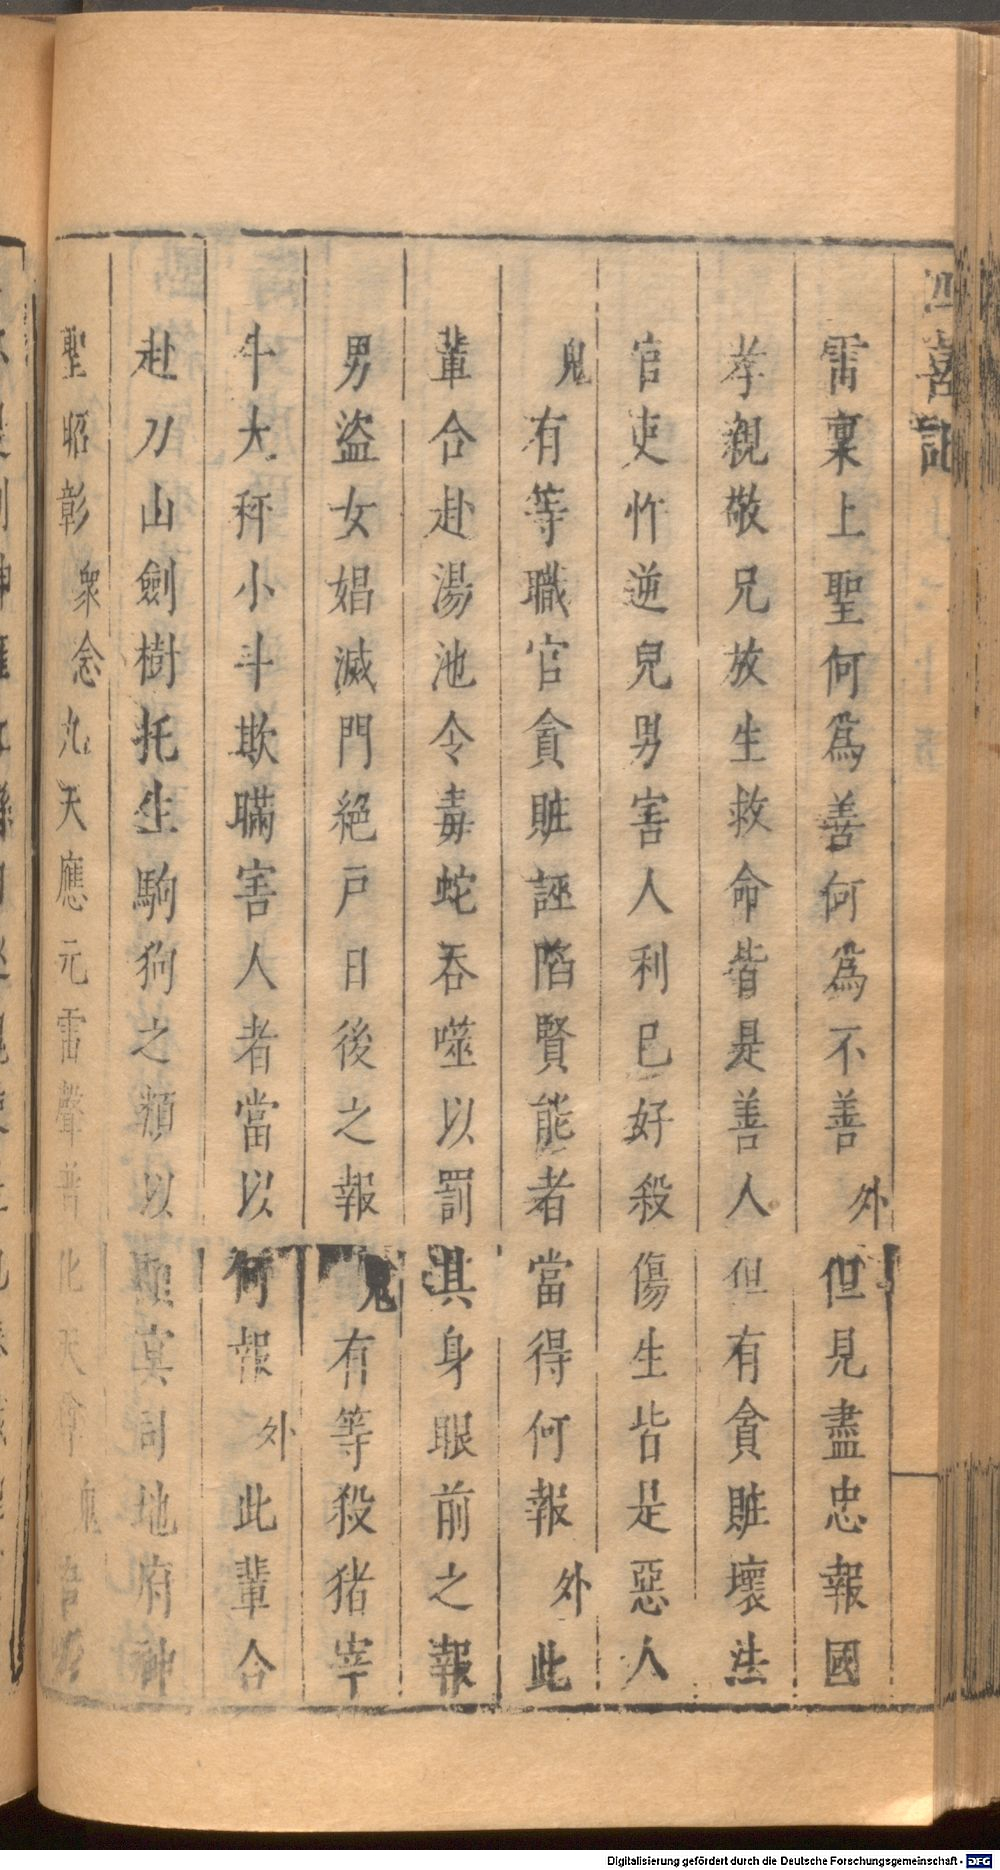 四喜記
雷稟上聖何爲善何爲不善外但見盡忠報國
孝親敬兄放生救命皆是善人但有貪賍壞法
官吏忤逆兒男害人利已好殺傷生皆是惡人
鬼有等職官貪賍誣陷賢能者當得何報外此
輩合赴湯池令毒蛇吞噬以罰其身眼前之報
男盜女娼滅門絕戸日後之報鬼有等殺猪宰
牛大秤小斗欺瞞害人者當以何報外此輩合
赴刀山劍樹托生駒狗之類以 㝠司地府神
聖昭彰衆念九天應元雷聲普化天尊鬼
Digitalisierung gefördert durch die Deutsche Forschungsgemeinschaft - DFG